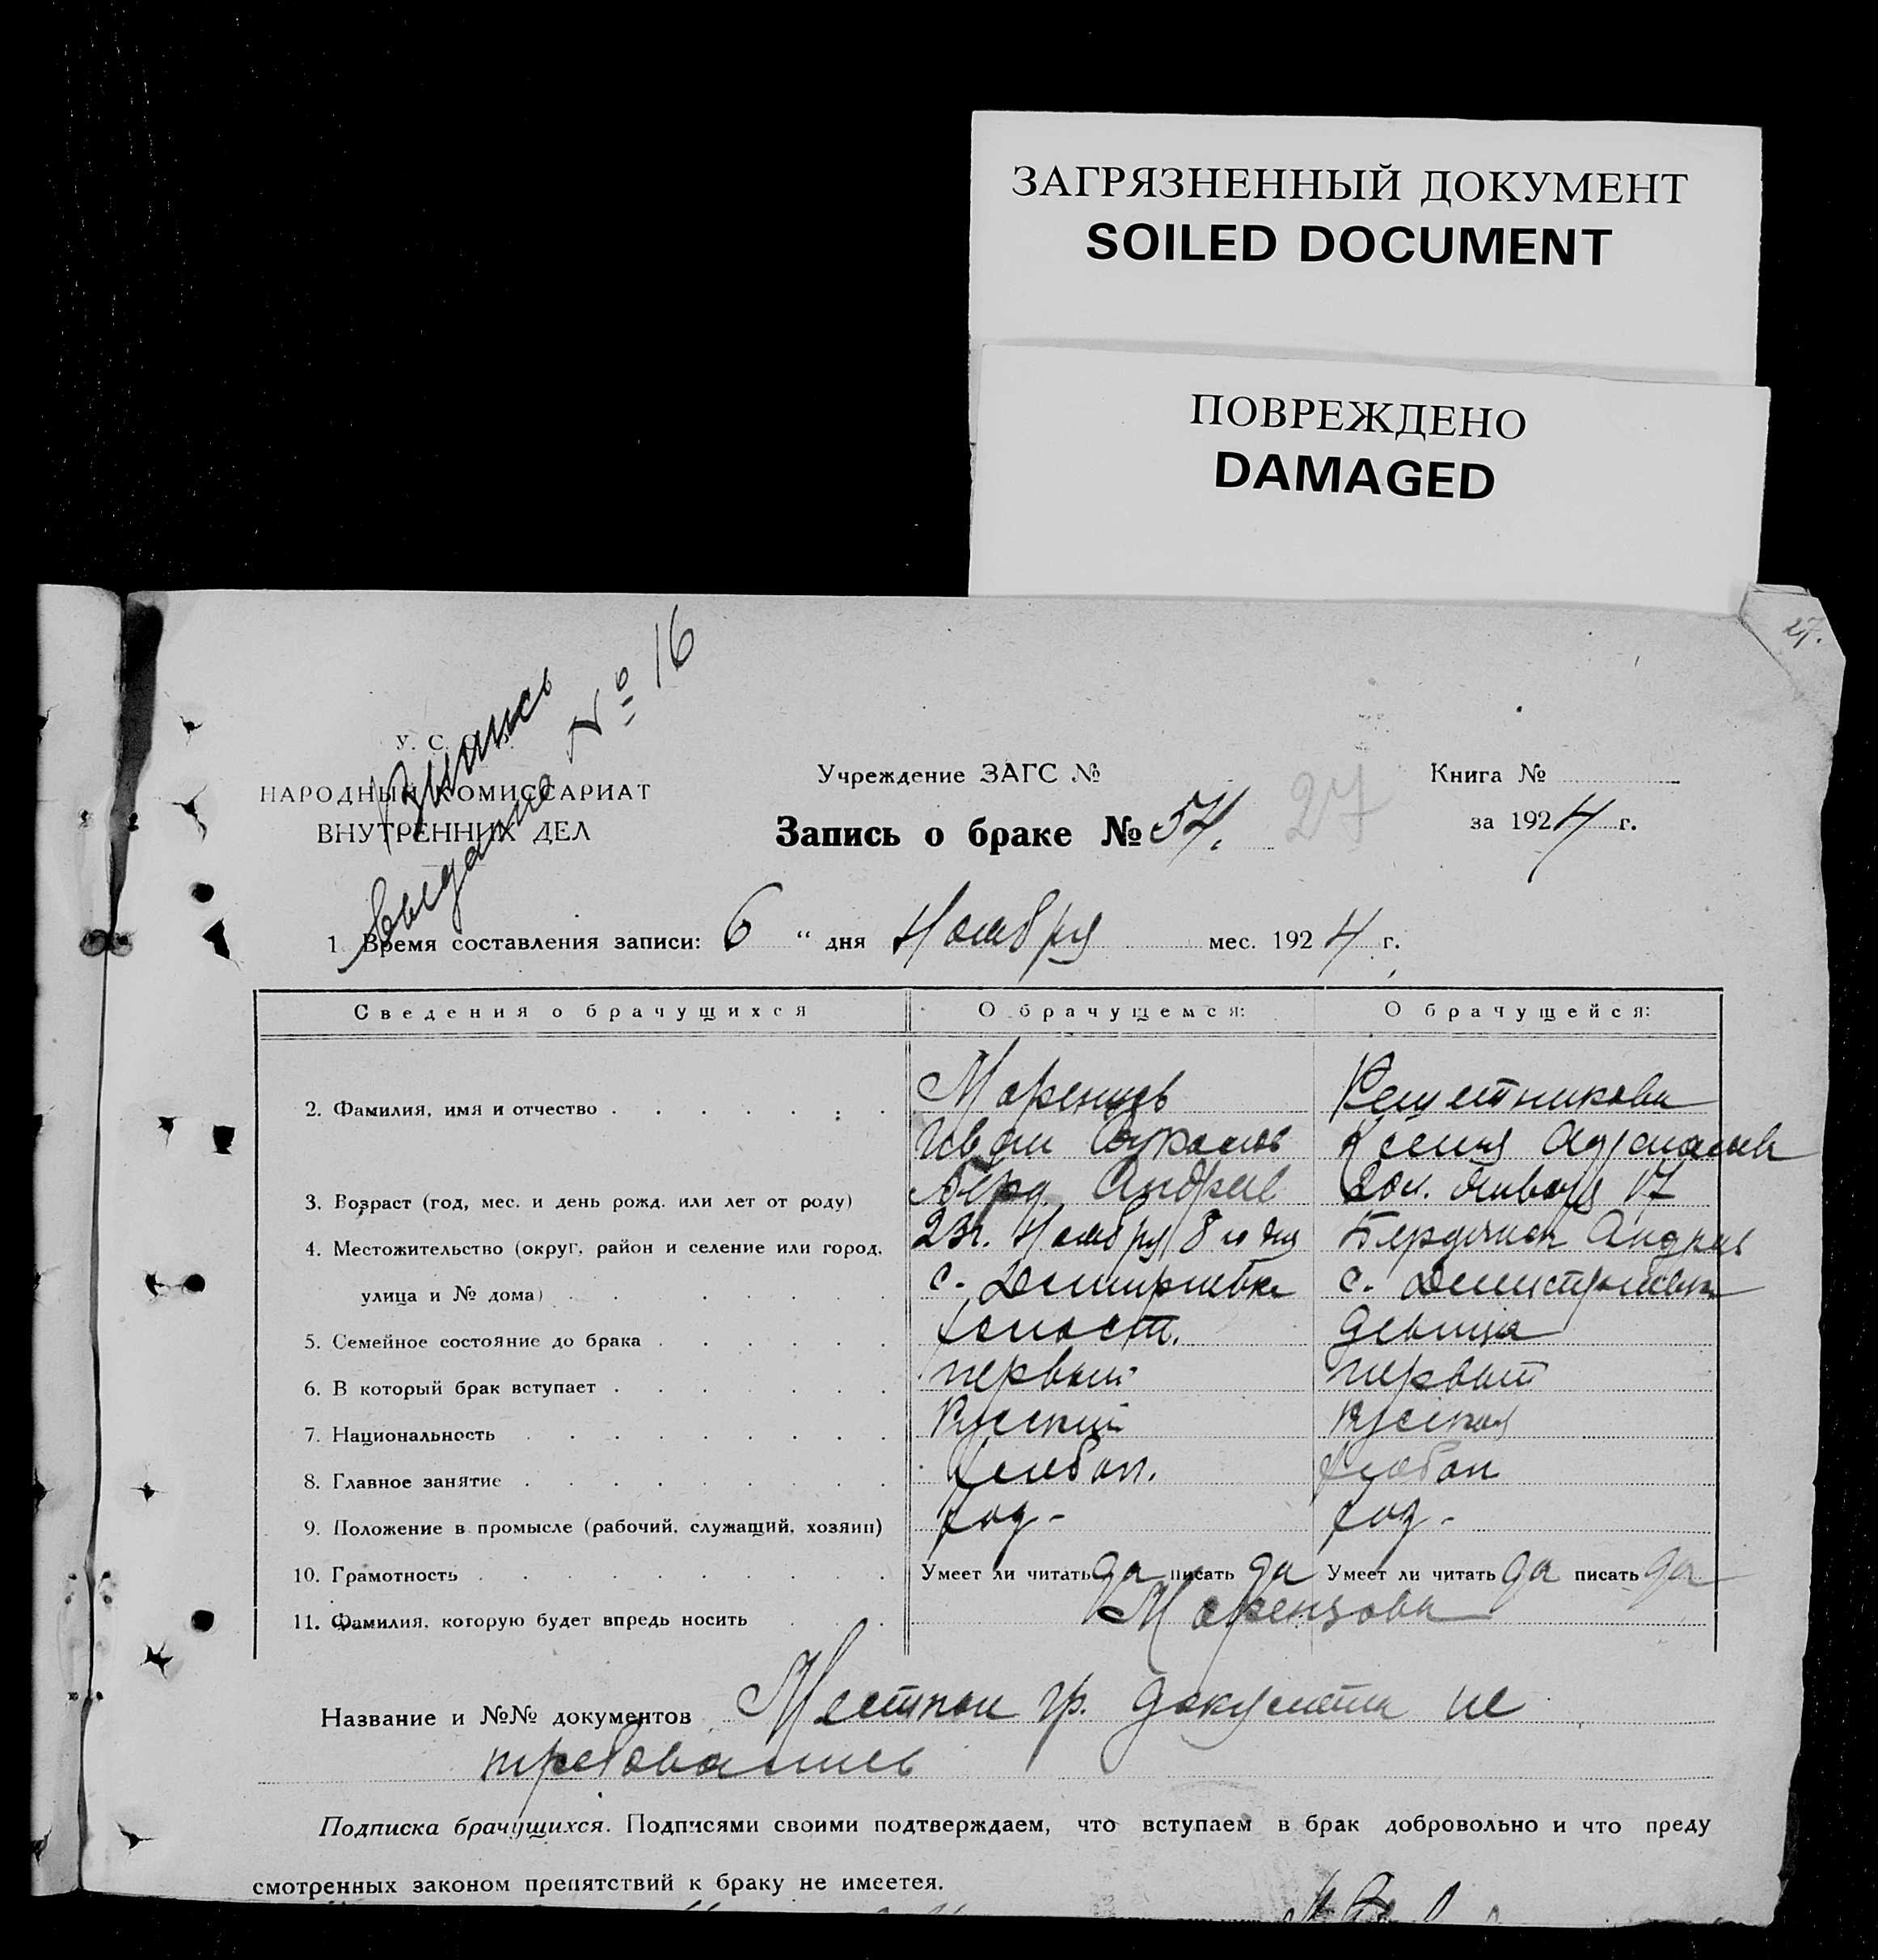 ЗАГРЯЗНЕННЫЙ ДОКУМЕНТ
SOILED DOCUMENT
ПОВРЕЖДЕНО
DAMAGED
27.
выдана № 16
У. С.
НАРОДНЫЙ КОМИССАРИАТ
ВНУТРЕННИХ ДЕЛ
Учреждение ЗАГС №
Книга №
Запись о браке № 57. 27
за 1924 г.
1 Время составления записи: 6 “ дня Ноября мес. 1924 г.
Сведения о брачущихся О брачущемся: О брачущейся:
2. Фамилия, имя и отчество Маренцов Решетникова
Иван Ксения
3. Возраст (год, мес. и день рожд. или лет от роду) Берд. Андрев 20л. Января 17
4. Местожительство (округ, район и селение или город, 23г. Ноября 8го дня Бердянск Андрев
улица и № дома) с. Дмитриевка с. Демитриевка
5. Семейное состояние до брака холост. девица
6. В который брак вступает первый первый
7. Национальность Руский Руская
8. Главное занятие хлебоп. хлебоп
9. Положение в промысле (рабочий, служащий, хозяин) хоз- хоз-
10. Грамотность Умеет ли читать да писать да Умеет ли читать да писать да
11. Фамилия, которую будет впредь носить Маренцова
Название и №№ документов Местные гр. документы не
требовались
Подписка брачущихся. Подписями своими подтверждаем, что вступаем в брак добровольно и что преду
смотренных законом препятствий к браку не имеется.